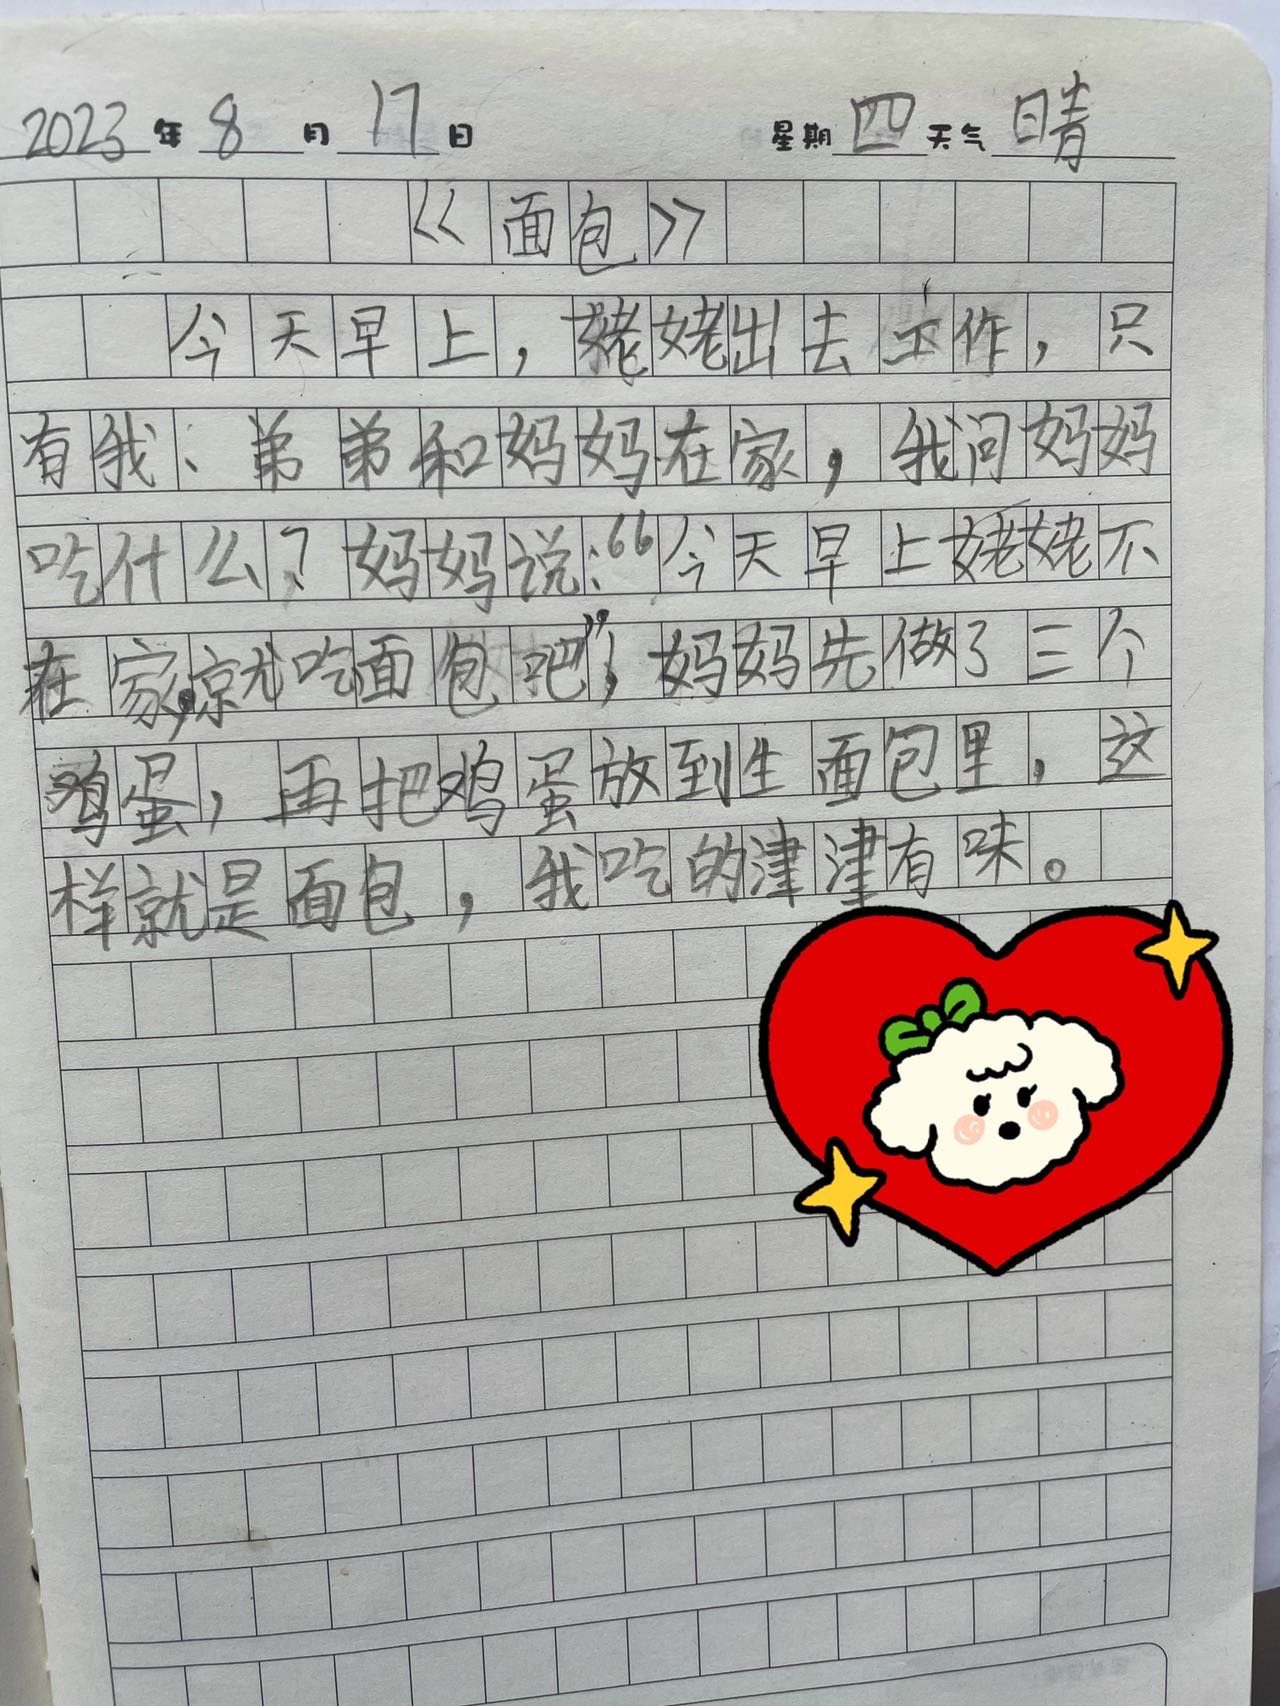 2023年8月17日 星期四天气晴
《面包》
今天早上，姥姥出去工作，只
有我、弟弟和妈妈在家，我问妈妈
吃什么？妈妈说：“今天早上姥姥不
在家，就吃面包吧”，妈妈先做了三个
鸡蛋，再把鸡蛋放到生面包里，这
样就是面包，我吃的津津有味。